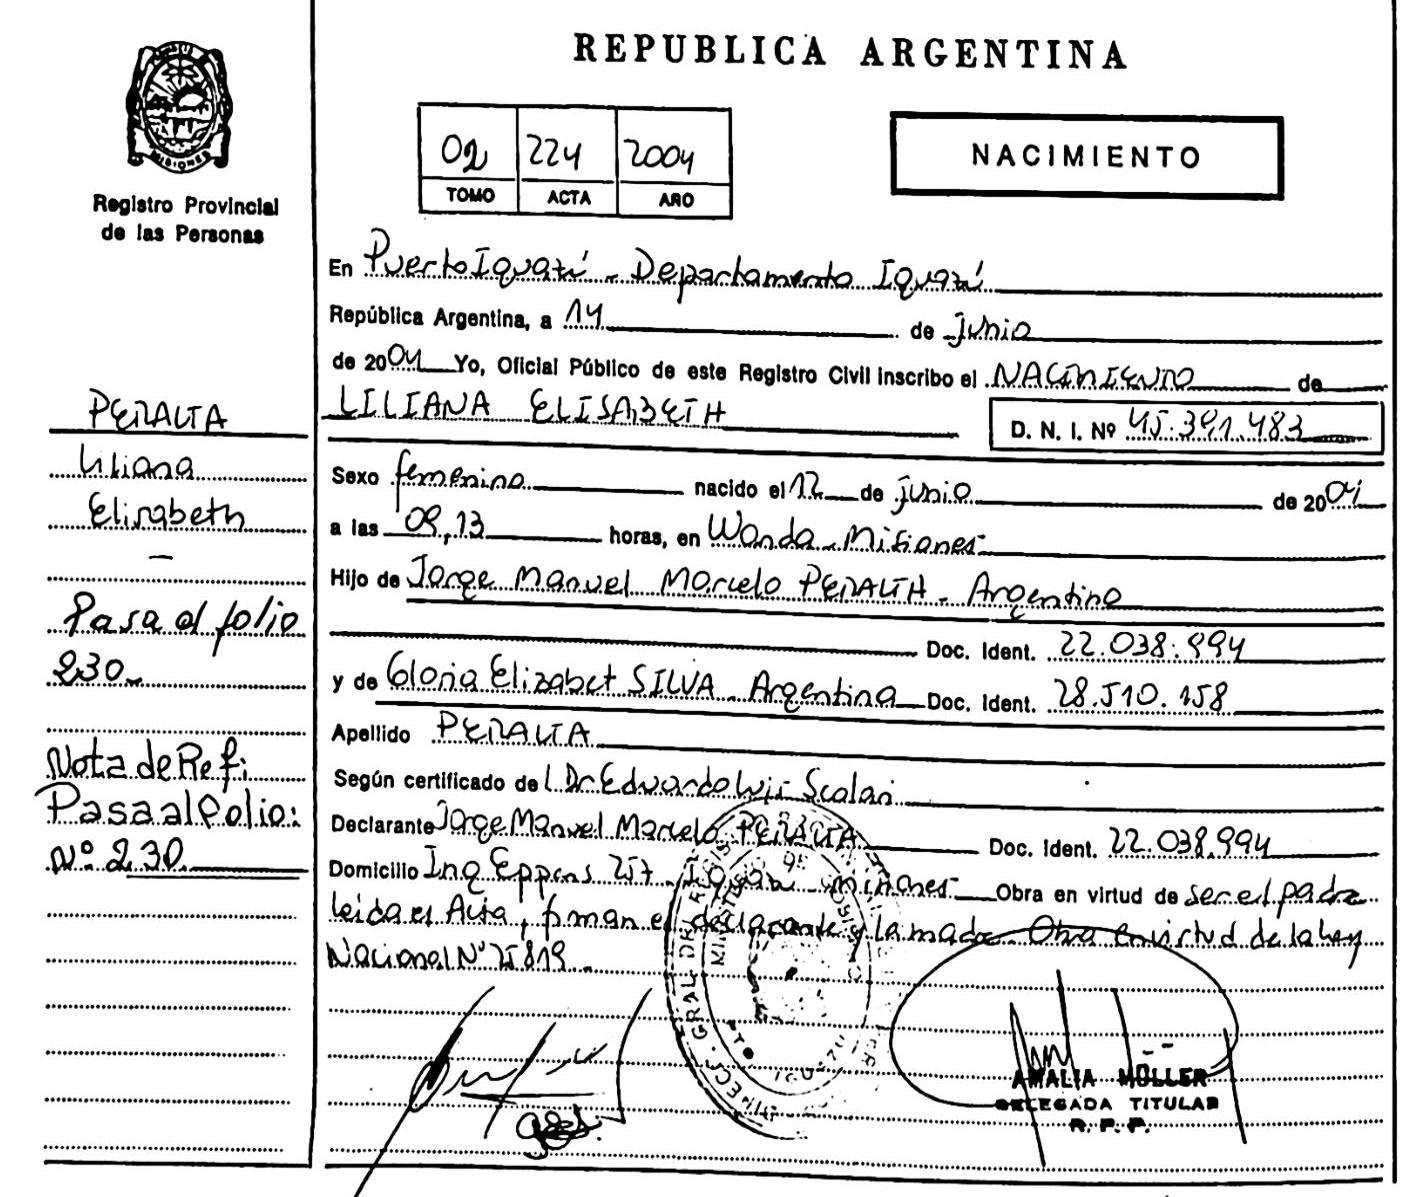 REPUBLICA ARGENTINA
MISIONES
Registro Provincial
de las Personas
02 224 2004
TOMO ACTA AÑO
NACIMIENTO
En Puerto Iguazú - Departamento Iguazú
República Argentina, a 14 de junio
de 2004 Yo, Oficial Público de este Registro Civil inscribo el NACIMIENTO de
LILIANA ELISABETH
D. N. I. Nº 45.391.483
Sexo femenino nacido el 12 de junio de 2004
a las 09,13 horas, en Wanda - Misiones
Hijo de Jorge Manuel Marcelo PERALTA - Argentino
Doc. Ident. 22.038.994
y de Gloria Elizabet SILVA - Argentina Doc. Ident. 28.510.158
Apellido PERALTA
Según certificado de l Dr Eduardo Luis Scalari
Declarante Jorge Manuel Marcelo PERALTA Doc. Ident. 22.038.994
Domicilio Ing Eppens 257 - Iguazú - Misiones Obra en virtud de ser el padre
leida el Acta, firman el declarante y la madre. Obra en virtud de la Ley
Nacional Nº 25819.
PERALTA
Liliana
Elisabeth
Pasa al folio
230
Nota de Ref:
Pasa al Folio:
Nº 230
AMALIA MÜLLER
DELEGADA TITULAR
R. P. P.